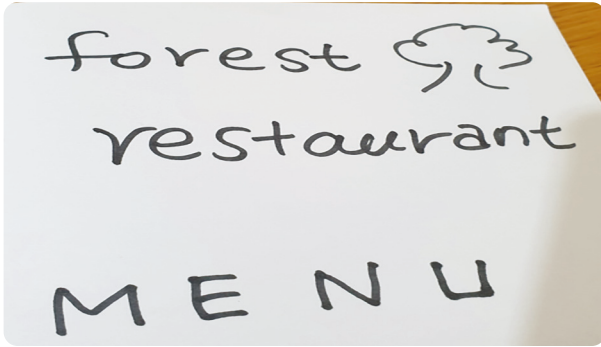 forest
restaurant
MENU